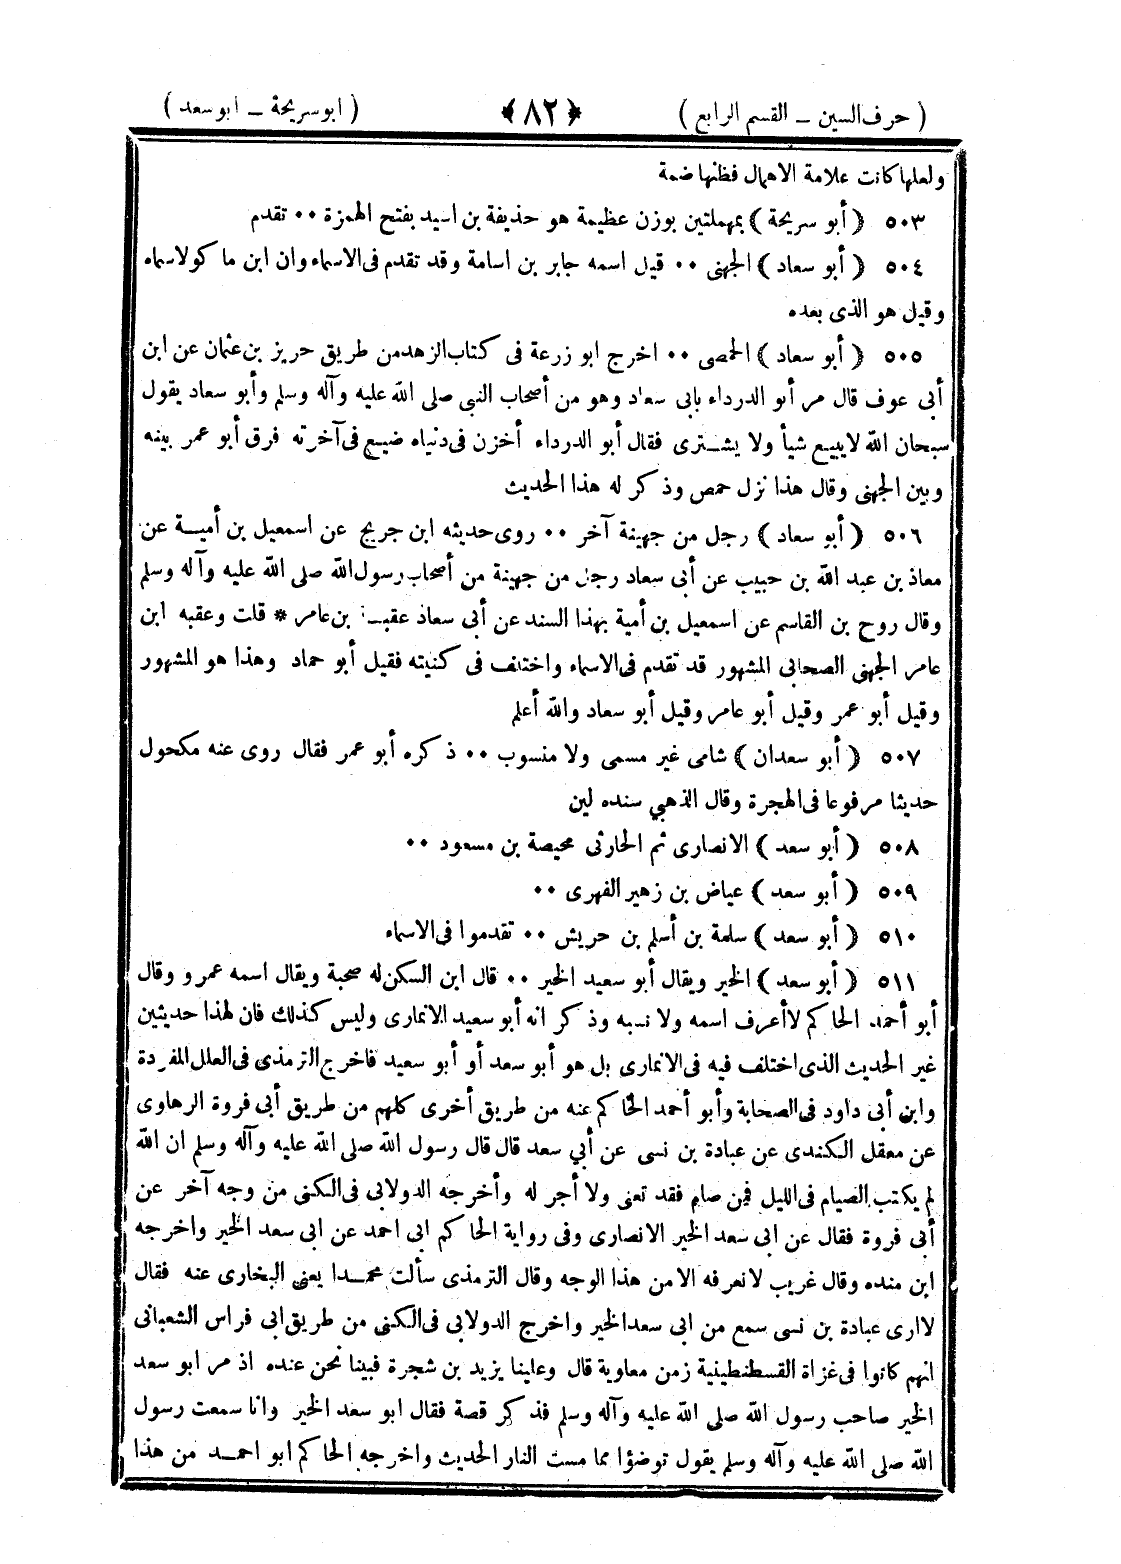 ( حرف السين – القسم الرابع ) ﴿ ٨٢ ﴾ ( ابو سريحة – ابو سعد )
ولعلها كانت علامة الاهمال فظنها ضمة
٥٠٣ ( أبو سريحة ) بمهملتين بوزن عظيمة هو حذيفة بن اسيد بفتح الهمزة ٠٠ تقدم
٥٠٤ ( أبو سعاد ) الجهنى ٠٠ قيل اسمه جابر بن اسامة وقد تقدم فى الاسماء وان ابن ما كولاسماه
وقيل هو الذى بعده
٥٠٥ ( أبو سعاد ) الحمصى ٠٠ اخرج ابو زرعة فى كتاب الزهد من طريق حريز بن عثمان عن ابن
أبى عوف قال مر أبو الدرداء بابى سعاد وهو من أصحاب النبى صلى الله عليه وآله وسلم وأبو سعاد يقول
سبحان الله لا يبيع شيأ ولا يشترى فقال أبو الدرداء أخزن فى دنياه ضيع فى آخرته فرق أبو عمر بينه
وبين الجهنى وقال هذا نزل حمص وذكر له هذا الحديث
٥٠٦ ( أبو سعاد ) رجل من جهينة آخر ٠٠ روى حديثه ابن جريج عن اسمعيل بن أمية عن
معاذ بن عبد الله بن حبيب عن أبى سعاد رجل من جهينة من أصحاب رسول الله صلى الله عليه وآله وسلم
وقال روح بن القاسم عن اسمعيل بن أمية بهذا السند عن أبى سعاذ عقبة بن عامر * قلت وعقبه ابن
عامر الجهنى الصحابى المشهور قد تقدم فى الاسماء واختلف فى كنيته فقيل أبو حماد وهذا هو المشهور
وقيل أبو عمر وقيل أبو عامر وقيل أبو سعاد والله أعلم
٥٠٧ ( أبو سعدان ) شامى غير مسمى ولا منسوب ٠٠ ذكره أبو عمر فقال روى عنه مكحول
حديثا مرفوعا فى الهجرة وقال الذهبي سنده لين
٥٠٨ ( أبو سعد ) الانصارى ثم الحارثى محيصة بن مسعود ٠٠
٥٠٩ ( أبو سعد ) عياض بن زهير الفهرى ٠٠
٥١٠ ( أبو سعد ) سلمة بن أسلم بن حريش ٠٠ تقدموا فى الاسماء
٥١١ ( أبو سعد ) الخير ويقال أبو سعيد الخير ٠٠ قال ابن السكن له صحبة ويقال اسمه عمرو وقال
أبو أحمد الحاكم لا أعرف اسمه ولا نسبه وذكر انه أبو سعيد الانمارى وليس كذلك فان لهذا حديثين
غير الحديث الذى اختلف فيه فى الانمارى بل هو أبو سعد أو أبو سعيد فاخرج الترمذى فى العلل المفردة
وابن أبى داود فى الصحابة وأبو أحمد الحاكم عنه من طريق أخرى كلهم من طريق أبى فروة الرهاوى
عن معقل الكندى عن عبادة بن نسى عن أبي سعد قال قال رسول الله صلى الله عليه وآله وسلم ان الله
لم يكتب الصيام فى الليل فمن صام فقد تعنى ولا أجر له وأخرجه الدولابى فى الكنى من وجه آخر عن
أبى فروة فقال عن ابى سعد الخير الانصارى وفى رواية الحاكم ابى احمد عن ابى سعد الخير واخرجه
ابن منده وقال غريب لا نعرفه الا من هذا الوجه وقال الترمذى سألت محمدا يعنى البخارى عنه فقال
لا ارى عبادة بن نسى سمع من ابى سعد الخير واخرج الدولابى فى الكنى من طريق ابى فراس الشعبانى
انهم كانوا فى غزاة القسطنطينية زمن معاوية قال وعلينا يزيد بن شجرة فبينا نحن عنده اذ مر ابو سعد
الخير صاحب رسول الله صلى الله عليه وآله وسلم فذكر قصة فقال ابو سعد الخير وانا سمعت رسول
الله صلى الله عليه وآله وسلم يقول توضؤا مما مست النار الحديث واخرجه الحاكم ابو احمد من هذا